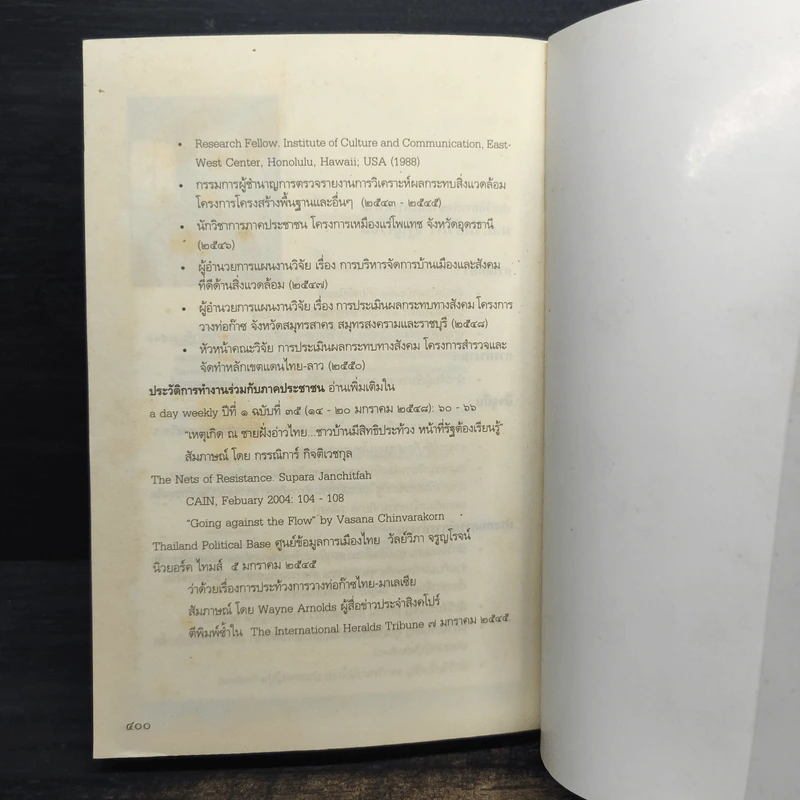 • Research Fellow. Institute of Culture and Communication, East-
West Center, Honolulu, Hawaii; USA (1988)
• กรรมการผู้ชำนาญการตรวจรายงานการวิเคราะห์ผลกระทบสิ่งแวดล้อม
โครงการโครงสร้างพื้นฐานและอื่นๆ (๒๕๔๓ - ๒๕๔๕)
• นักวิชาการภาคประชาชน โครงการเหมืองแร่โพแทช จังหวัดอุดรธานี
(๒๕๔๖)
• ผู้อำนวยการแผนงานวิจัย เรื่อง การบริหารจัดการบ้านเมืองและสังคม
ที่ดีด้านสิ่งแวดล้อม (๒๕๔๗)
• ผู้อำนวยการแผนงานวิจัย เรื่อง การประเมินผลกระทบทางสังคม โครงการ
วางท่อก๊าซ จังหวัดสมุทรสาคร สมุทรสงครามและราชบุรี (๒๕๔๘)
• หัวหน้าคณะวิจัย การประเมินผลกระทบทางสังคม โครงการสำรวจและ
จัดทำหลักเขตแดนไทย-ลาว (๒๕๕๐)
ประวัติการทำงานร่วมกับภาคประชาชน อ่านเพิ่มเติมใน
a day weekly ปีที่ ๑ ฉบับที่ ๓๕ (๑๔ - ๒๐ มกราคม ๒๕๔๘): ๖๐ - ๖๖
"เหตุเกิด ณ ชายฝั่งอ่าวไทย...ชาวบ้านมีสิทธิประท้วง หน้าที่รัฐต้องเรียนรู้"
สัมภาษณ์ โดย กรรณิการ์ กิจติเวชกุล
The Nets of Resistance. Supara Janchitfah
CAIN, Febuary 2004: 104 - 108
"Going against the Flow" by Vasana Chinvarakorn
Thailand Political Base ศูนย์ข้อมูลการเมืองไทย วัลย์วิภา จรูญโรจน์
นิวยอร์ค ไทมส์ ๕ มกราคม ๒๕๔๕
ว่าด้วยเรื่องการประท้วงการวางท่อก๊าซไทย-มาเลเซีย
สัมภาษณ์ โดย Wayne Arnolds ผู้สื่อข่าวประจำสิงคโปร์
ตีพิมพ์ซ้ำใน The International Heralds Tribune ๗ มกราคม ๒๕๔๕
๔๐๐